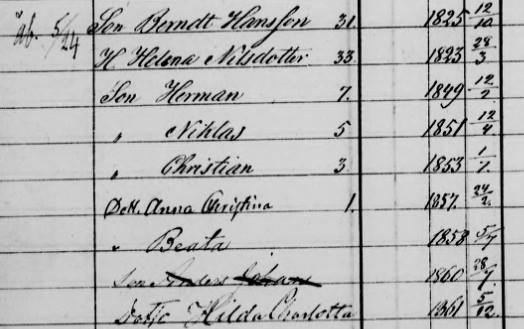 ab. 5/24 Son Berndt Hansson 31. 1825 12/10
H Helena Nilsdotter 33 1823 28/3
Son Herman 7. 1849 12/2
" Niklas 5 1851 12/4
" Christian 3 1853 1/7.
Dott. Anna Christina 1. 1857. 24/2.
" Beata 1858 5/7
Son Anders Johan 1860 28/7
Hilda Charlotta 1861 5/12